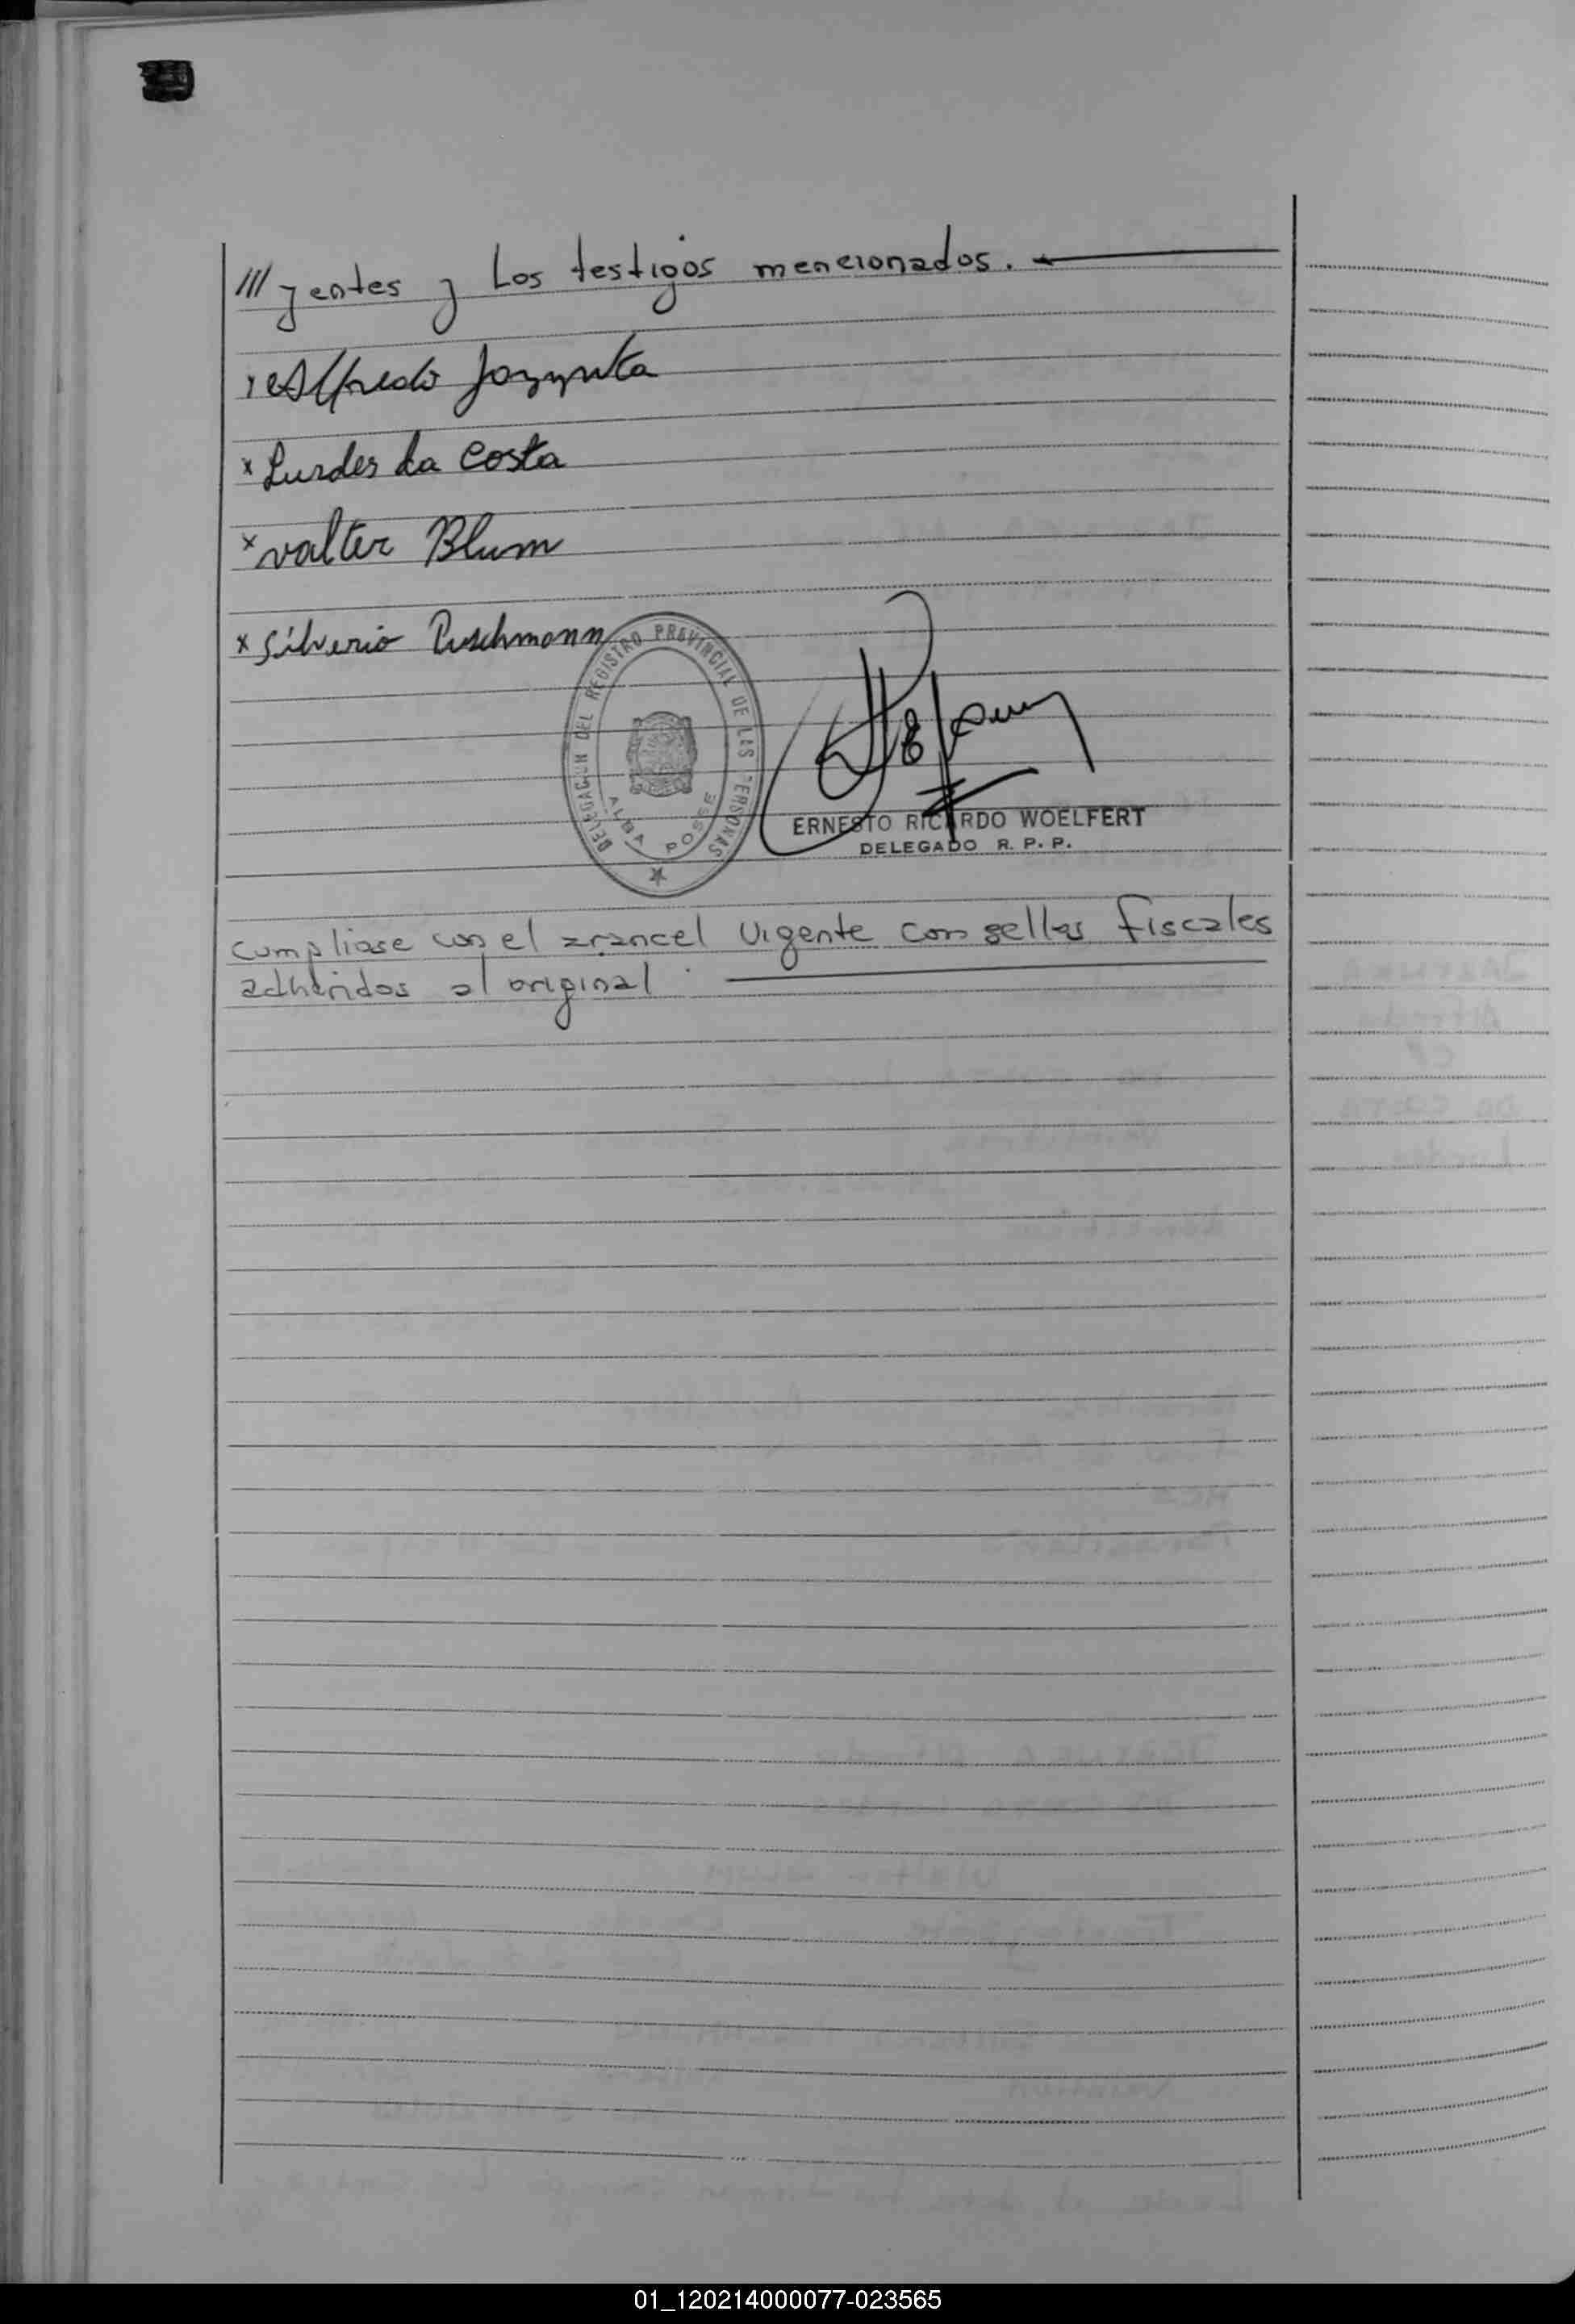 /// yentes y Los testigos mencionados.
x Alfredo
x Lurdes da costa
x valter Blum
x Silverio Puschmann
DELEGACION DEL REGISTRO PROVINCIAL DE LAS PERSONAS
ALBA POSSE
ERNESTO RICARDO WOELFERT
DELEGADO R. P. P.
cumpliose con el arancel vigente con sellos fiscales
adheridos al original.
01_120214000077-023565